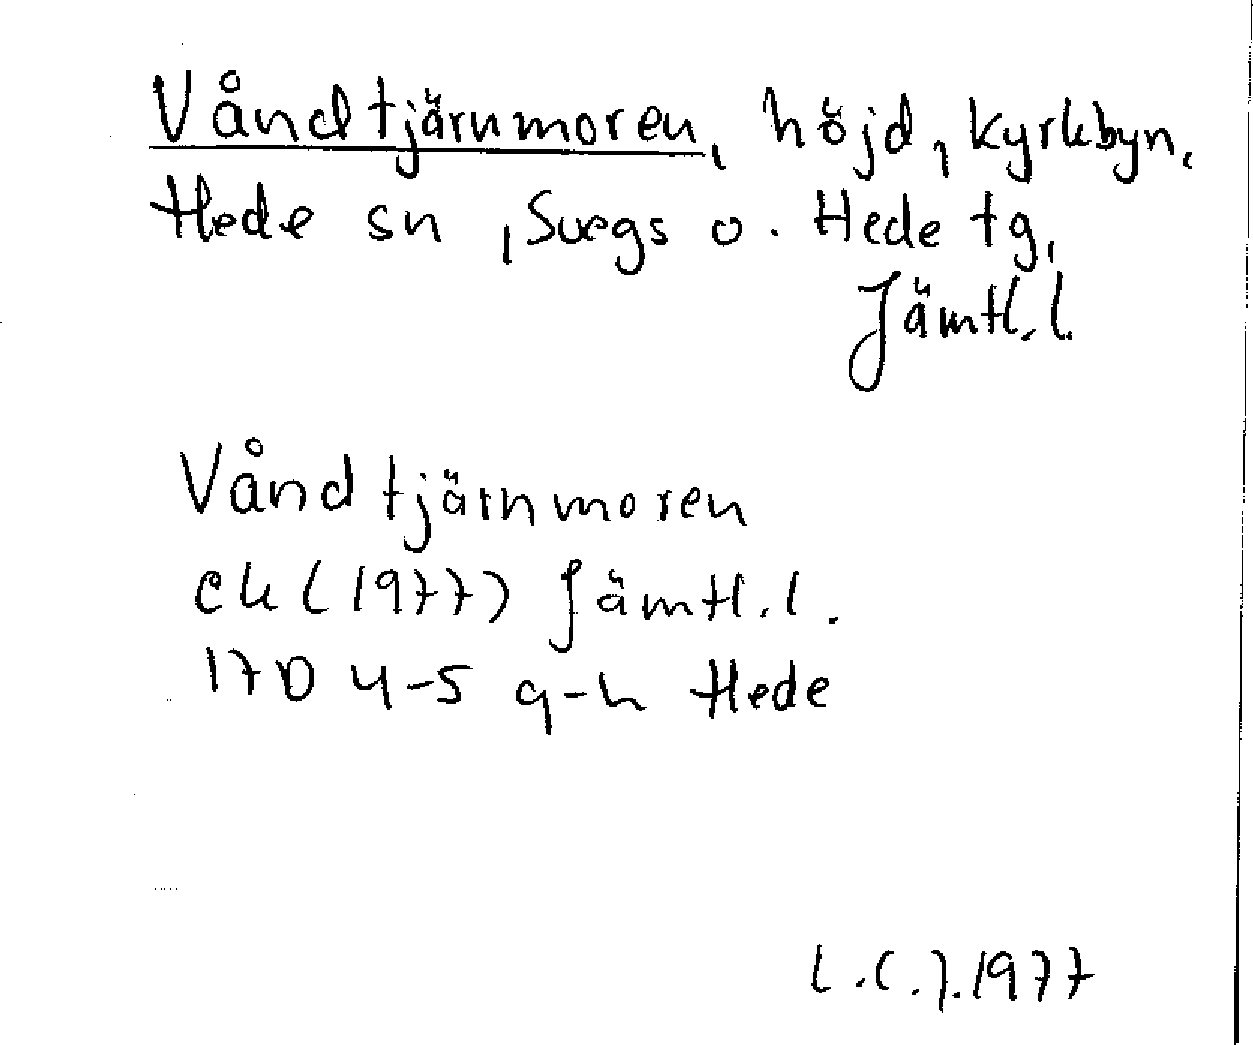 Våndtjärnmoren, höjd, kyrkbyn,
Hede sn, Svegs o. Hede tg,
Jämtl. l.
Våndtjärnmoren
ek (1977) Jämtl. l.
17D 4-5 g-h Hede
L.C.J. 1977